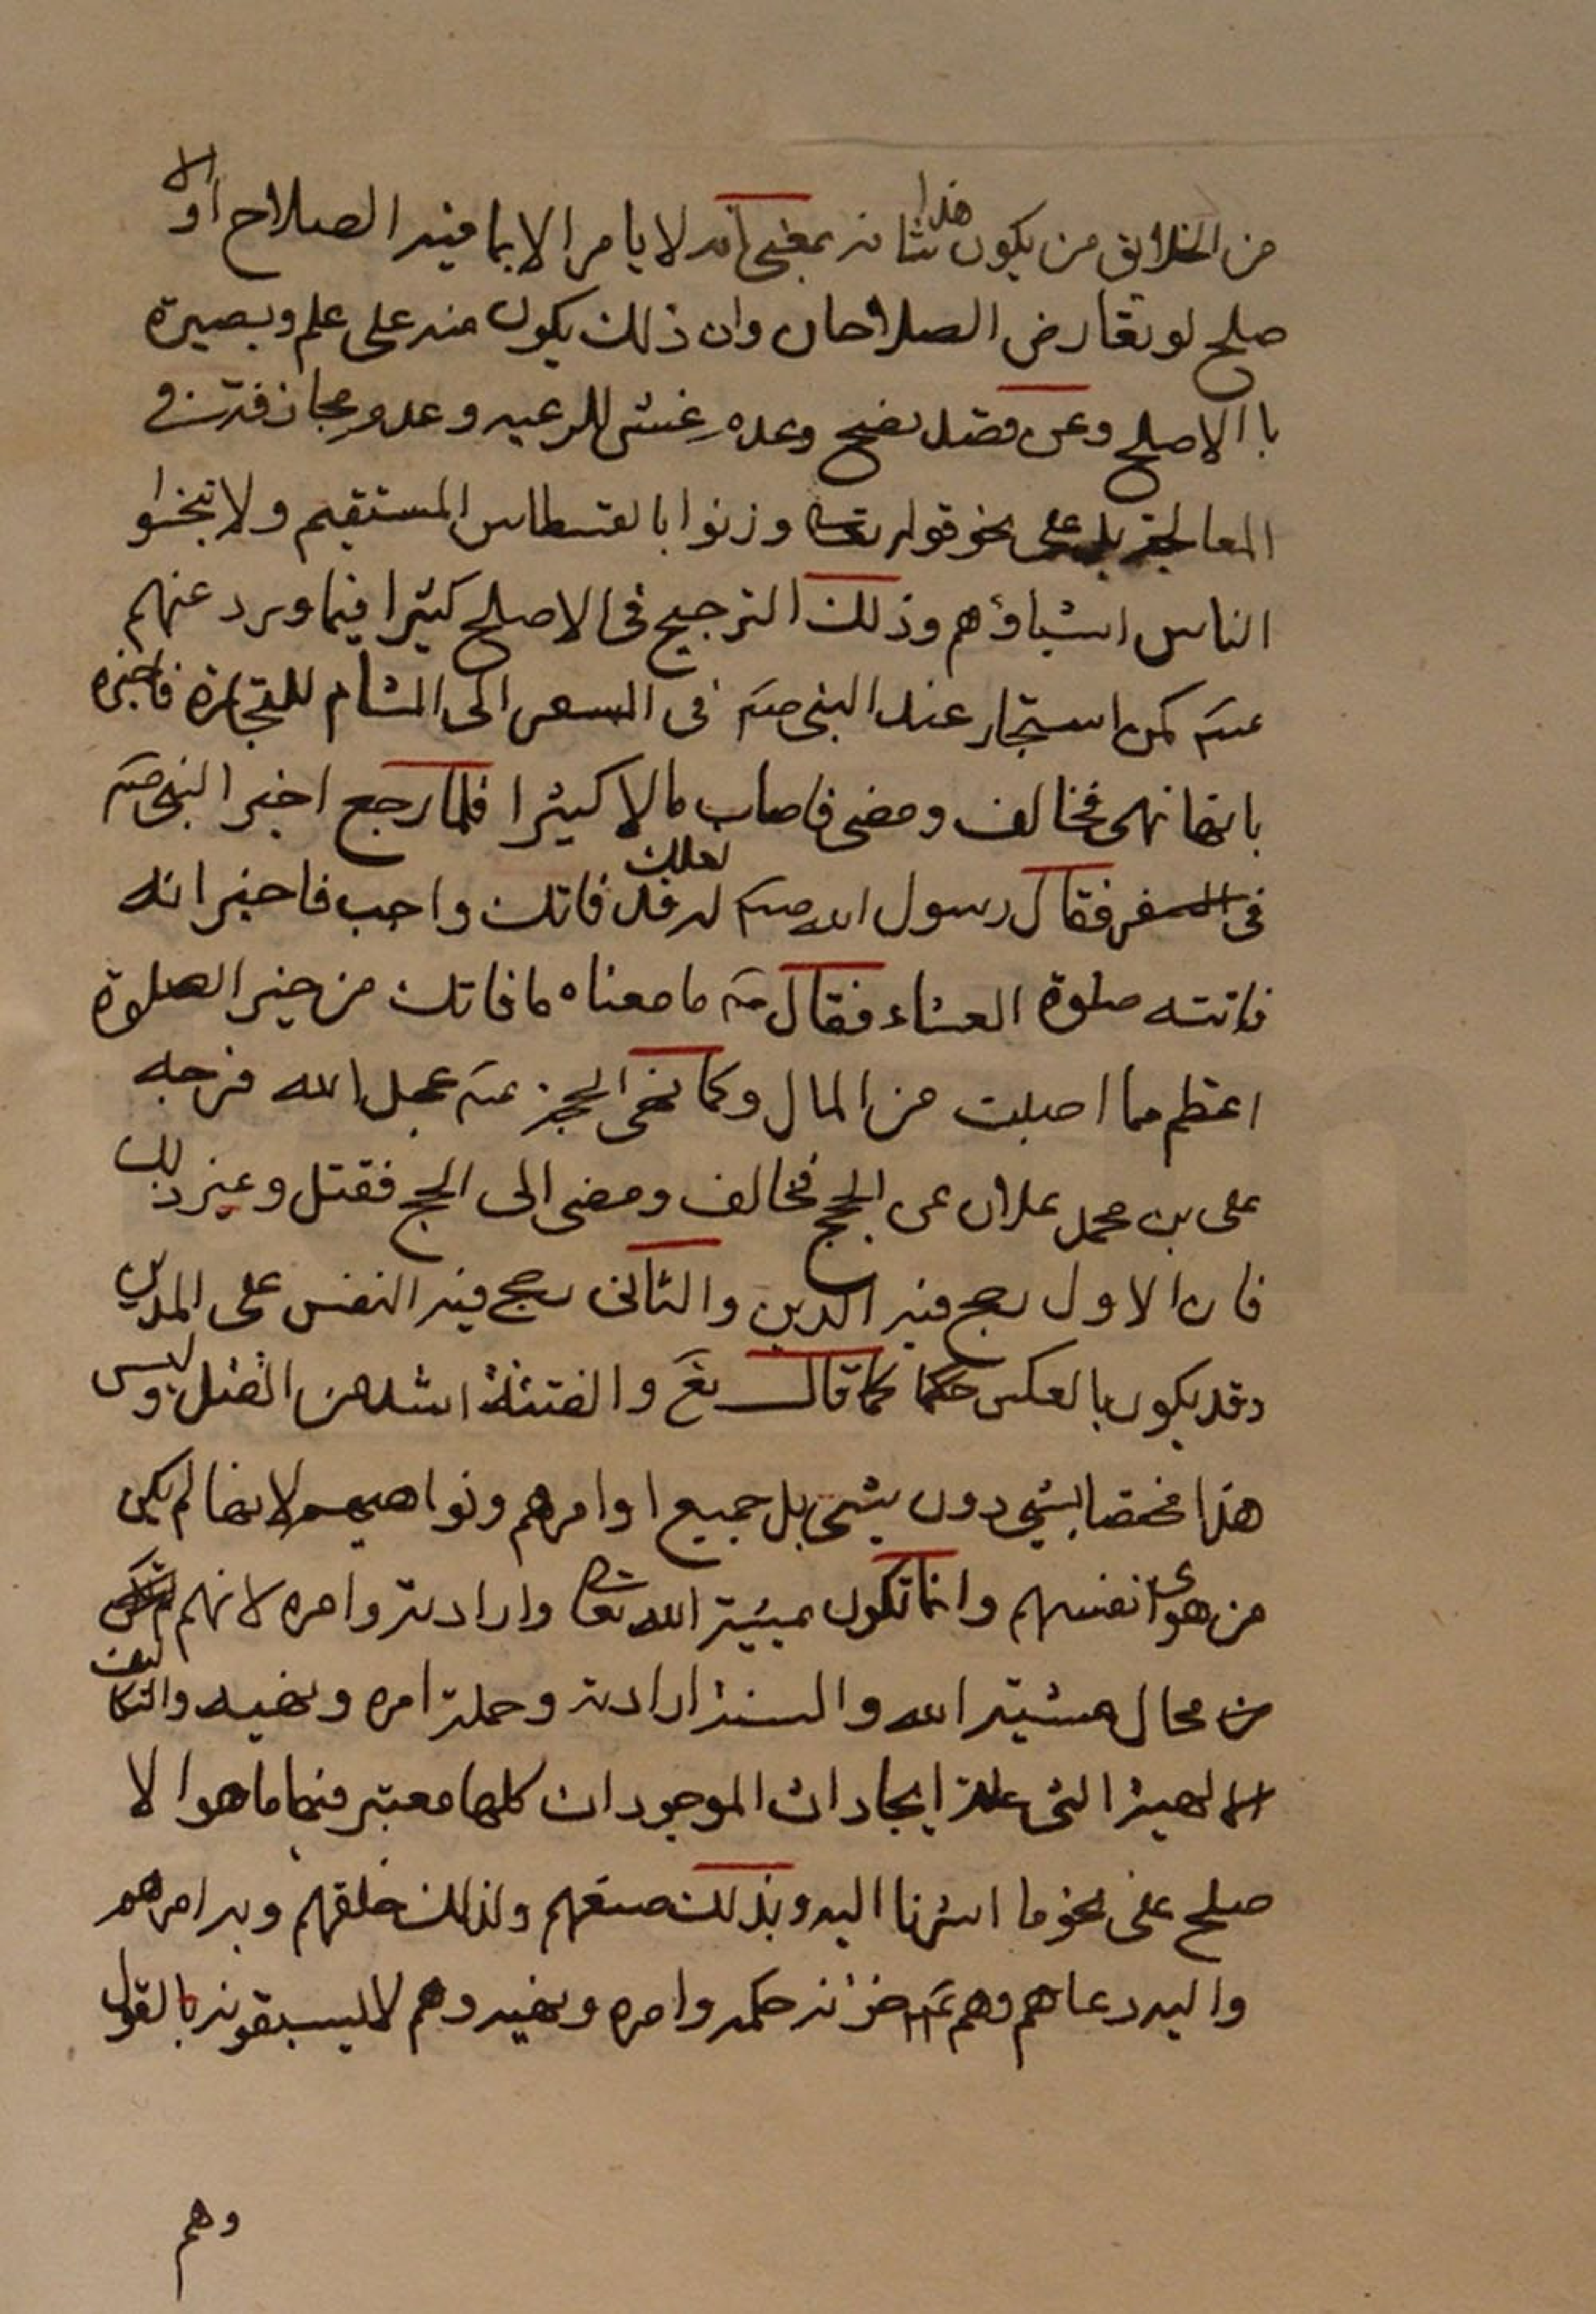 من الخلائق من يكون هذا شانه بمعنى انه لا يامر الا بما فيه الصلاح او الا
صلح لو تعارض الصلاحان وان ذلك يكون منه على علم وبصيرة
با الاصلح وعن فضل نصح وعدم غش للرعيه وعدم مجازفة في
المعالجة بل على نحو قوله تعالى وزنوا بالقسطاس المستقيم ولا تبخسوا
الناس اشياؤهم وذلك الترجيح في الاصلح كثيرا فيما ورد عنهم
عليهم كمن استجار عند النبي صلعم في السفر الى الشام للتجارة فاخبره
بانها نهى فخالف ومضى فاصاب مالا كثيرا فلما رجع اخبر النبي صلعم
في السفر فقال رسول الله صلعم له لعلك قد فاتك واجب فاخبر انه
فاتته صلوة العشاء فقال ص ما معناه ما فاتك من خير الصلوة
اعظم مما اصبت من المال وكما نهى الحجة عجل الله فرجه
على بن محمد علان عن الحج فخالف ومضى الى الحج فقتل وغير ذلك
فان الاول رجح فيه الدين والثاني رجح فيه النفس على المدين
وقد يكون بالعكس حكما كما قال تع والفتنة اشد من القتل وليس
هذا مختصا بشئ دون شئ بل جميع اوامرهم ونواهيهم لانها لم يكن
من هوى انفسهم وانما تكون بمشية الله تعالى وارادته وامره لانهم
من محال مشية الله والسنة ارادته وحملة امره ونهيه والتكاليف
الالهية التى علة ايجادات الموجودات كلها معتبر فيها ما هوا لا
صلح على نحو ما اشرنا اليه وبذلك صنعهم ولذلك خلقهم وبه امرهم
واليه دعاهم وهم خزانه حكمه وامره ونهيه وهم لا يسبقونه بالقول
وهم